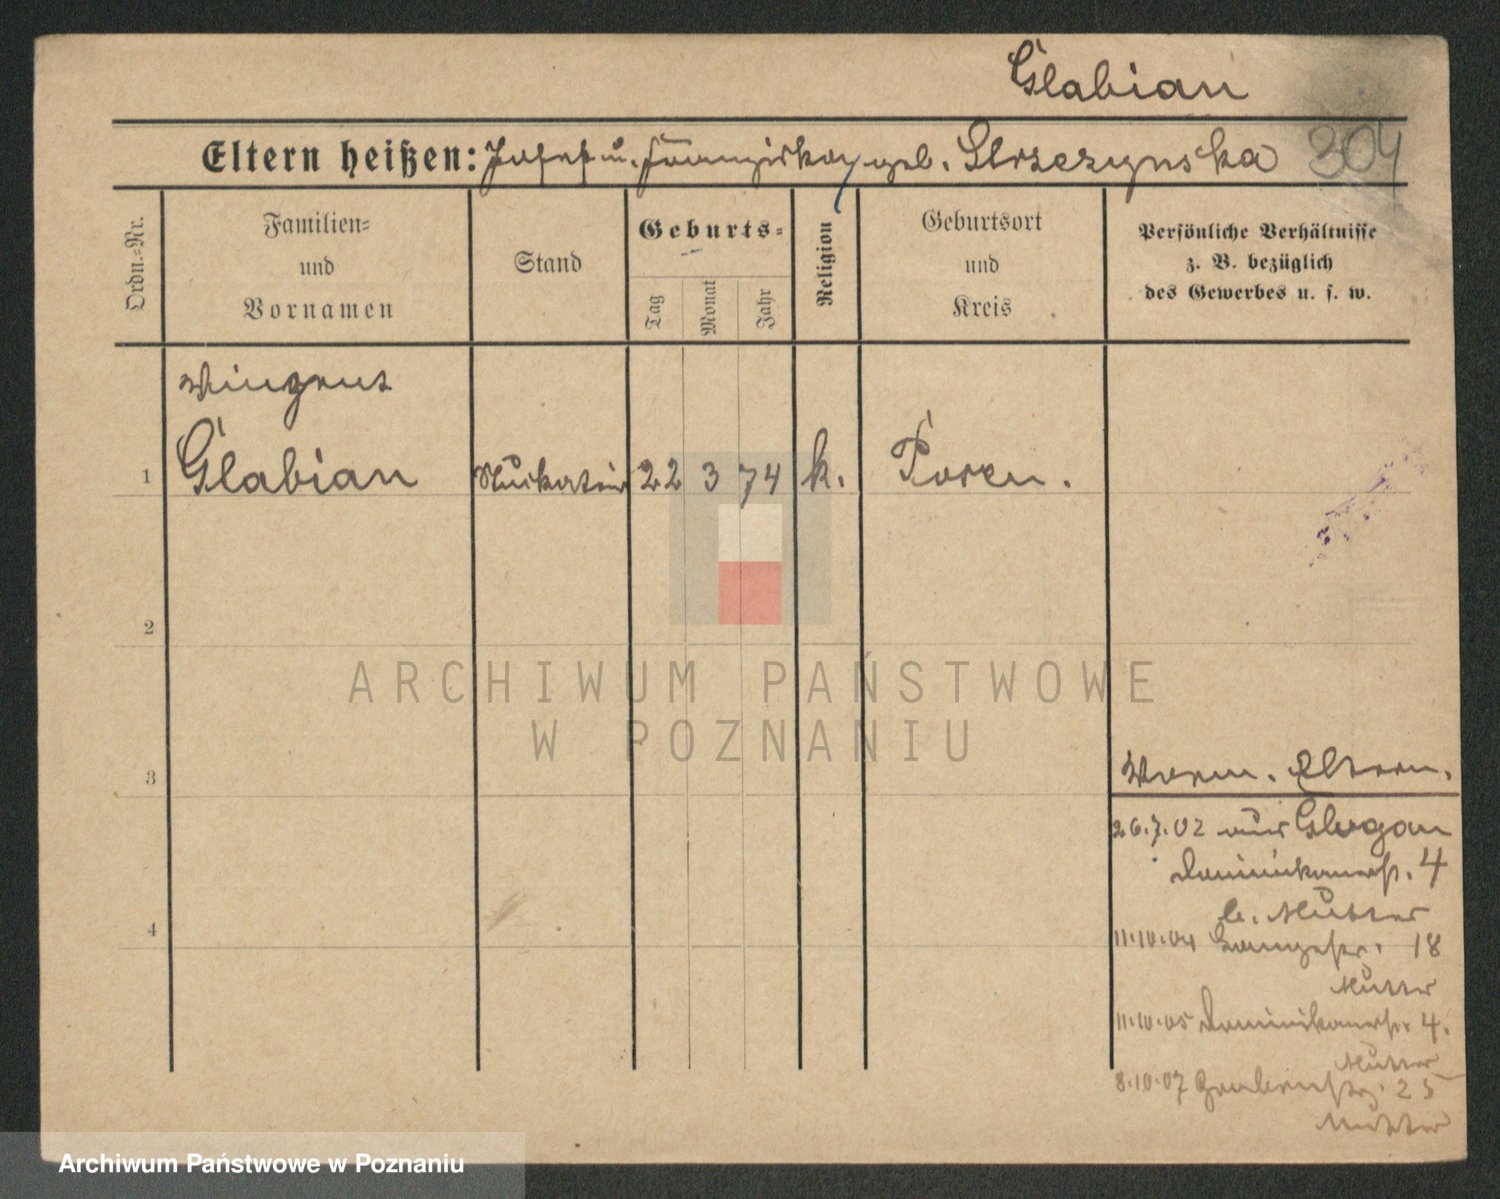 Glabian
Eltern heißen: Josef u. Franziska geb. Strzezynska 304
Ordn.-Nr.
Familien-
und
Vornamen
Stand
Geburts-
Tag
Monat
Jahr
Religion
Geburtsort
und
Kreis
Persönliche Verhältnisse
z. B. bezüglich
des Gewerbes u. s. w.
Winzent
1 Glabian Stuckateur 22 3 74 k. Posen.
2
3
4
ARCHIWUM PAŃSTWOWE
W POZNANIU
Eltern.
26.7.02 aus Glogau
Dominikanerstr. 4
b. Mutter
11.10.04 18
Mutter
11.10.05 Dominikanerstr. 4.
Mutter
8.10.07 Grabenstr. 25
Mutter
Archiwum Państwowe w Poznaniu